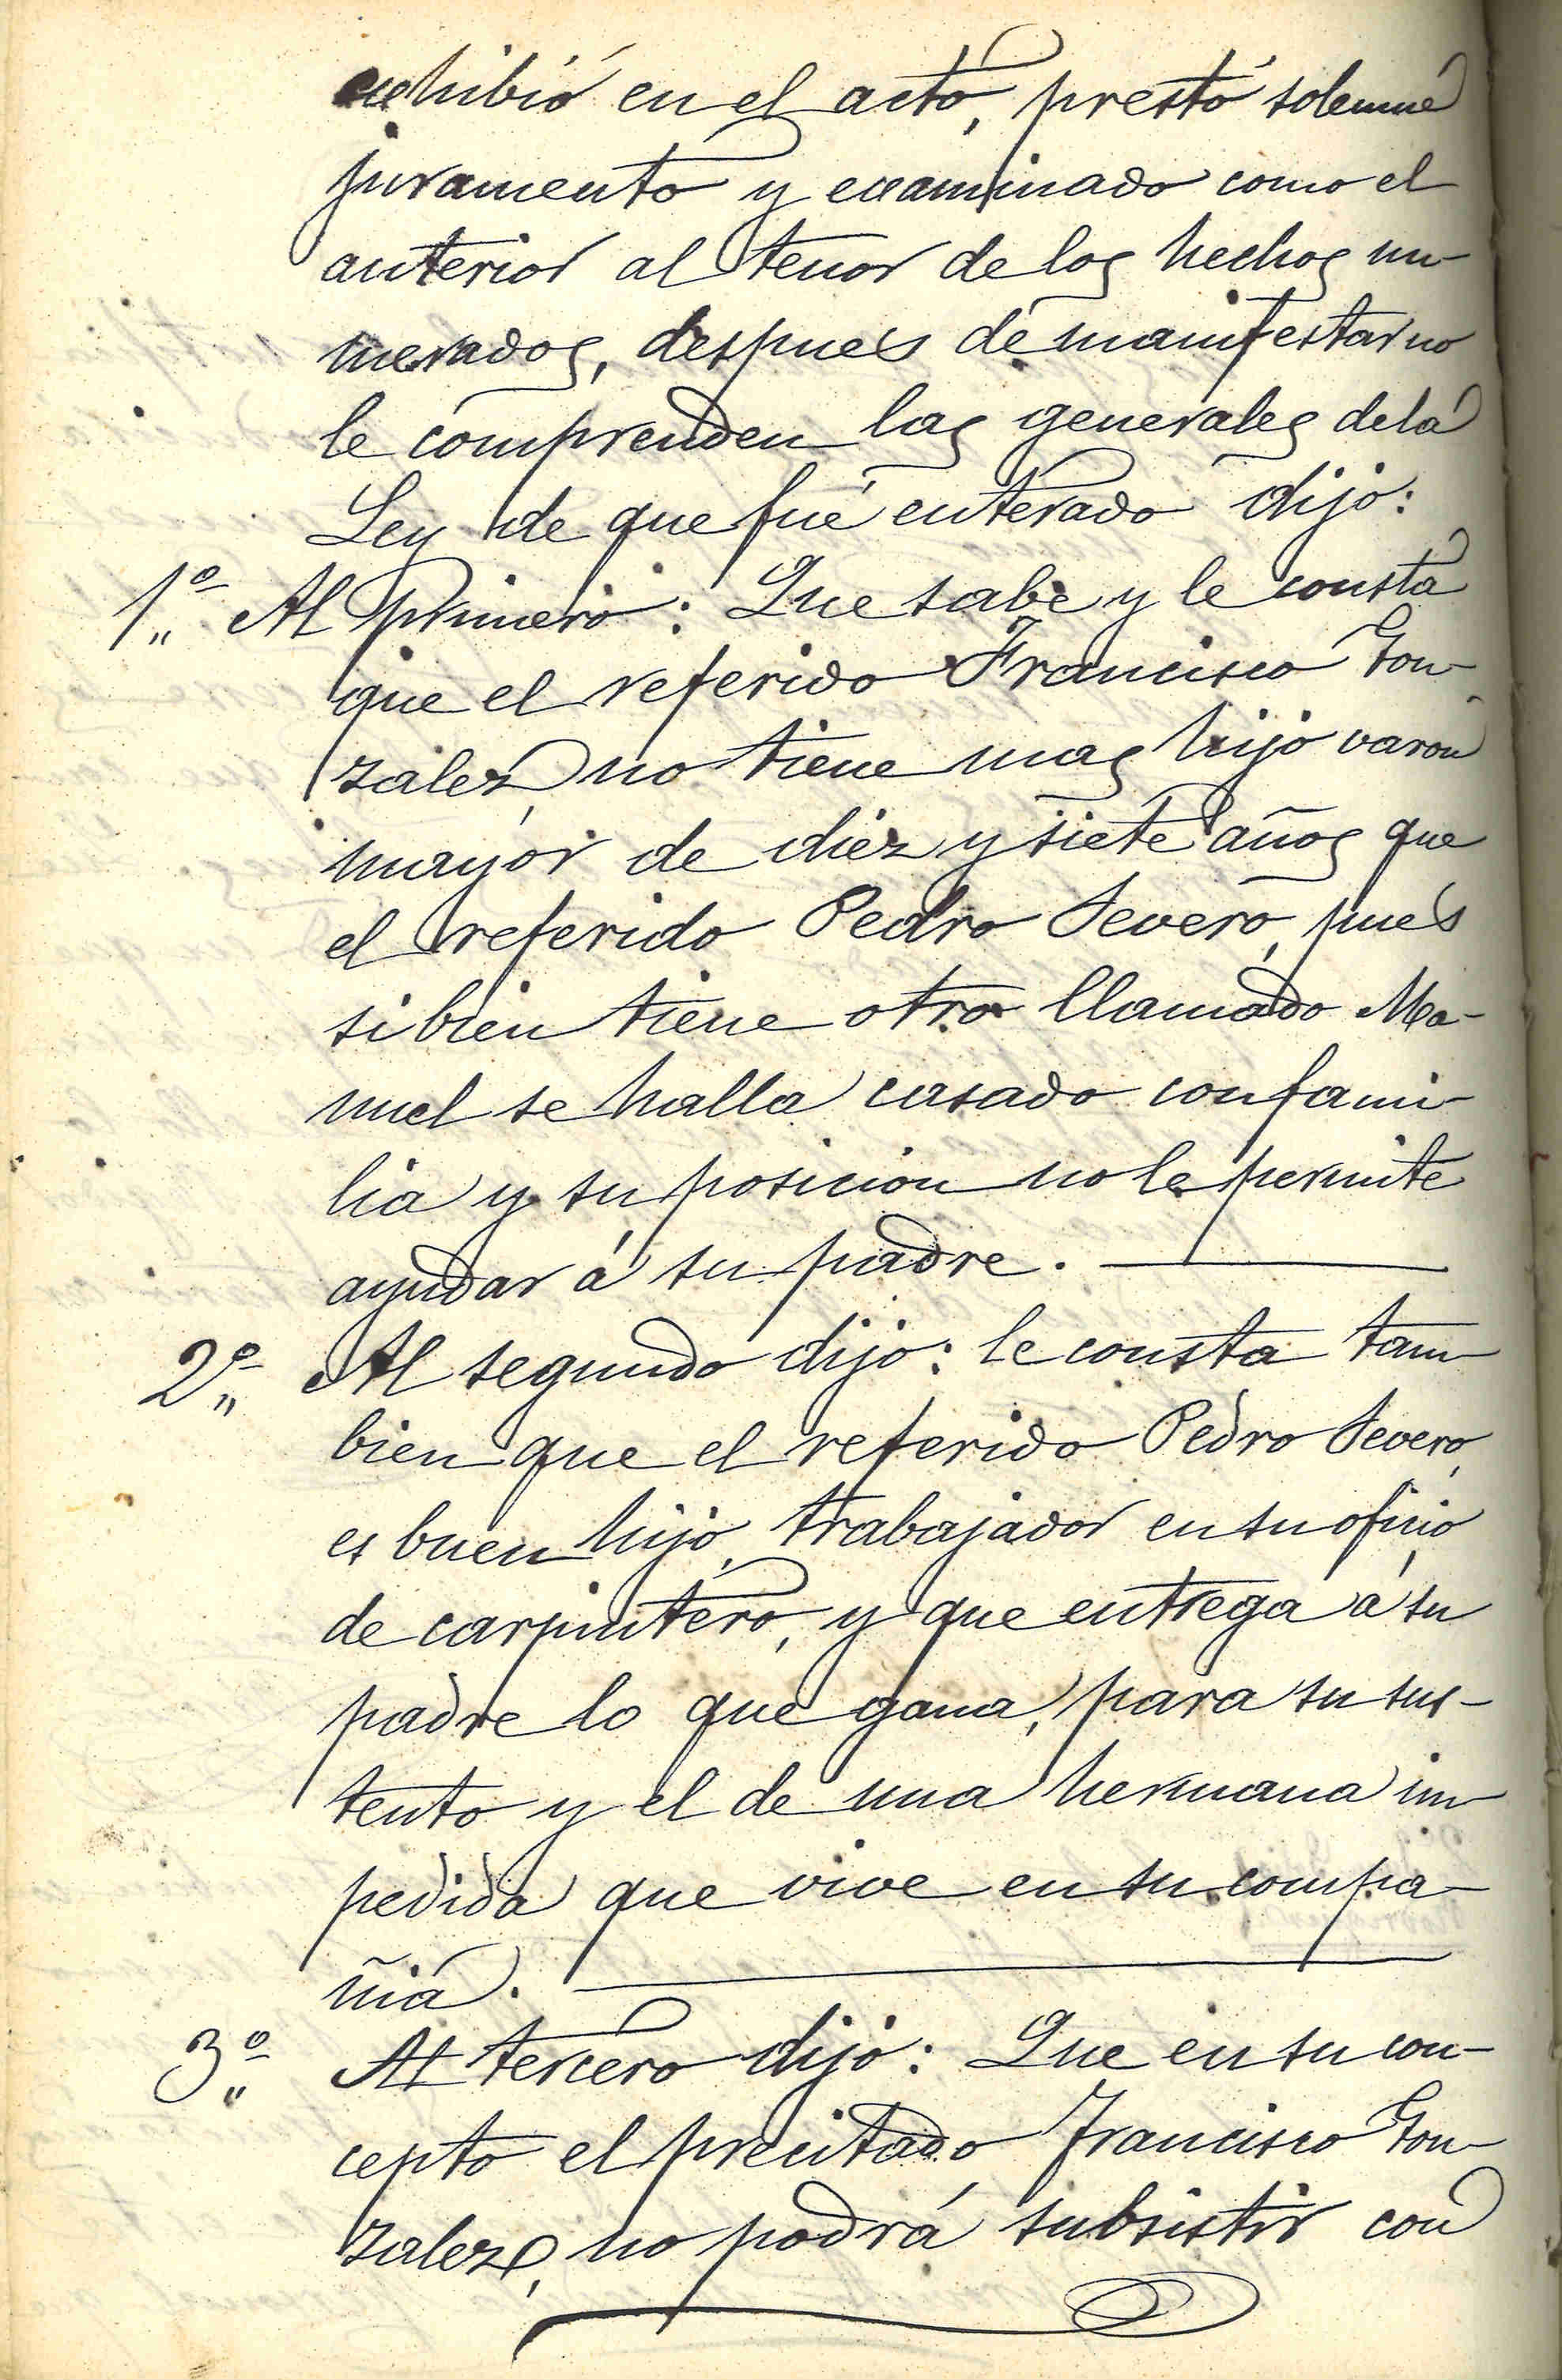 exhibió en el acto, prestó solemne
juramento y examinado como el
anterior al tenor de los hechos nu-
merados, despues de manifestar no
le comprenden las generales de la
Ley de que fué enterado dijo:
1º Al primero: Que sabe y le consta
que el referido Francisco Gon-
zalez, no tiene mas hijo varon
mayor de diez y siete años que
el referido Pedro Severo, pues
si bien tiene otro llamado Ma-
nuel se halla casado con fami-
lia y su posicion no le permite
ayudar á su padre.
2º Al segundo dijo: le consta tam
bien que el referido Pedro Severo,
es buen hijo, trabajador en su oficio
de carpintero, y que entrega á su
padre lo que gana, para su sus-
tento y el de una hermana im
pedida que vive en su compa-
ñia.
3º Al tercero dijo: Que en su con-
cepto el precitado Francisco Gon-
zalez, no podrá subsistir con